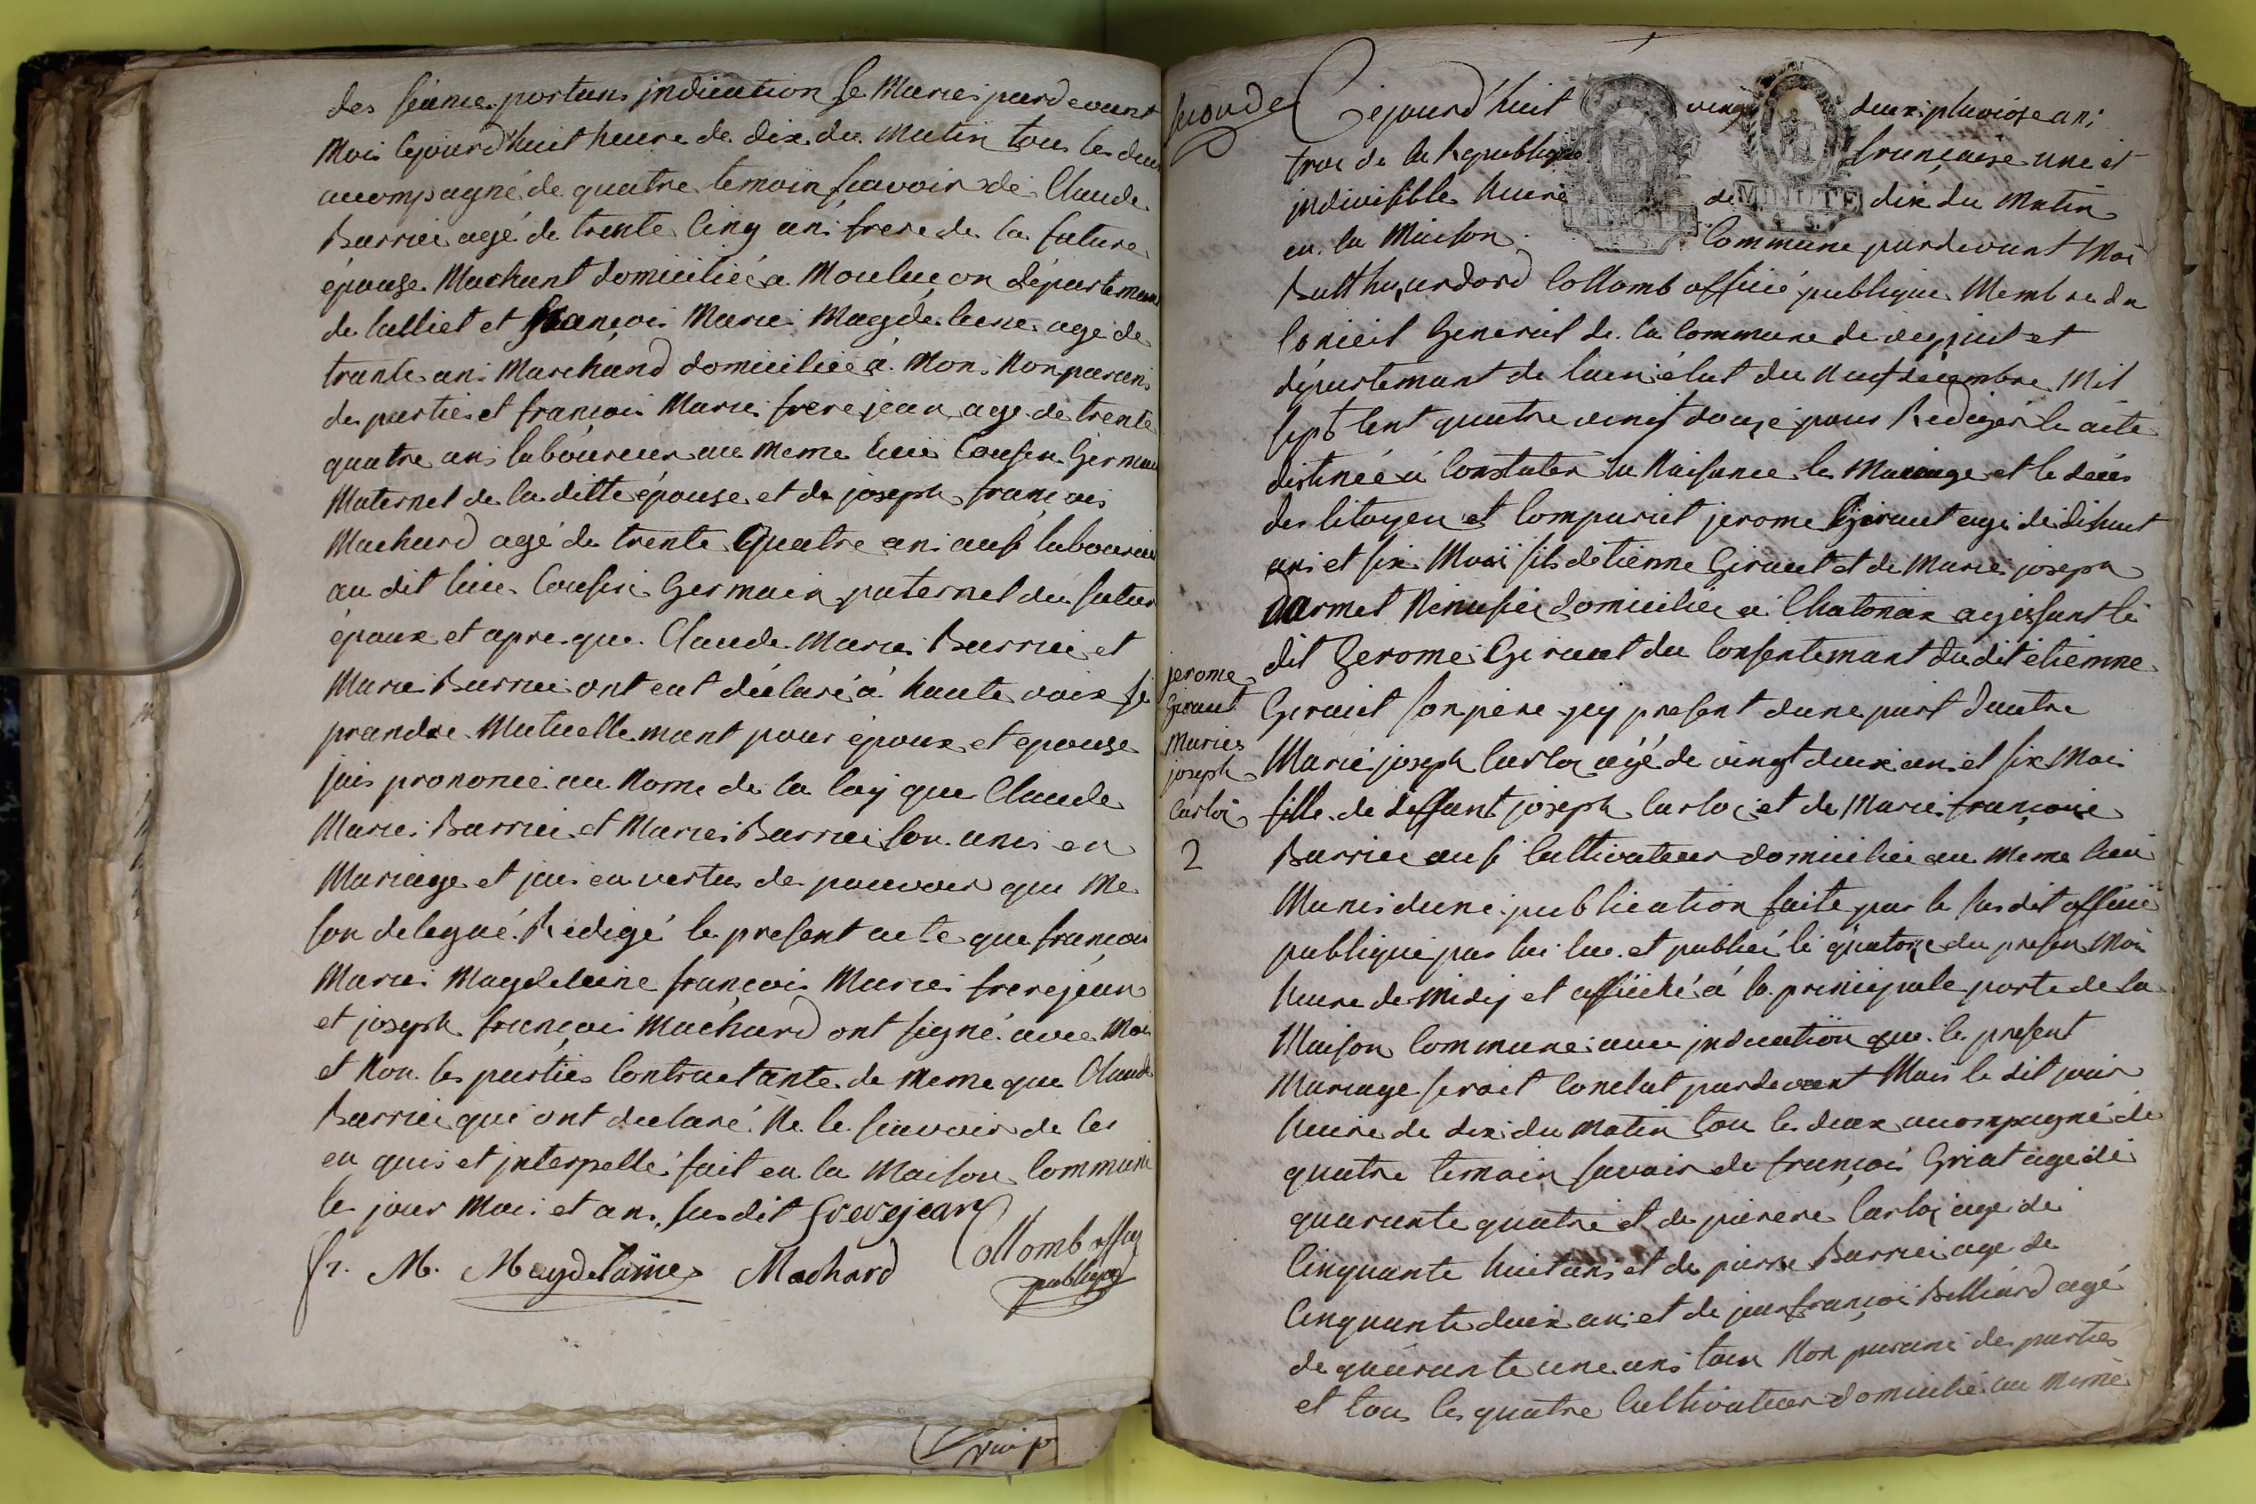 des séance portans jndication se Maries pardevant
Mois cejourd'huit heure de dix du Matin tous les deux
acompagné de quatre temoin scavoir de Claude
Barriei agé de trente cinq ans frere de la future
épouse Machant domiciliée a Moulucon département
de lalliet et françois Marie Magdeleine age de
trante ans Marchand domiciliée à Mons Non parans
des parties et françois Marie frere jean age de trente
quatre ans laboureur au meme lieu Cousin Germain
Maternel de la ditte épouse et de joseph françois
Machard agé de trente Quatre ans aussi laboureur
au dit lieu Cousin Germain paternel du futur
époux et apre que Claude Marie Barriei et
Marie Barriei ont eut déclaré à haute voix se
prandre Mutuellemant pour époux et epouse
jais prononcé au Nom de la loy que Claude
Marie Barriei et Marie Barriei son unis en
Mariage et jais en vertus de pouvoir qui Me
son delegué Redigé le present acte que françois
Marie Magdeleine françois Marie frerejean
et joseph françois Machard ont signé avec Moi
et Non les parties Contractante de meme que Claude
Barriei qui ont declaré Ne le scavoir de ces
en quis et jnterpellé fait en la Maison Commune
les jour Mois et ans susdit frerejean
fr. M. Magdelaine Machard Collomb officie
publique
seconde
Cejourd'huit vingt deux pluviose ans
trois de la Republique française une et
jndivisible heure de dix du Matin
en la Maison Commune pardevant Moi
MINUTE
Collomb officié publique Membre du
Conseil General de la Commune de et
départemant de Lain élut du Neuf décembre Mil
sept Cent quatre vingt douze pour Rediger le acte
distinée à Constater la Naisance les Mariage et le décès
des Citoyen et Comparoit jerome Giraut age de dihuit
ans et six Moi fils détienne Giraut et de Marie joseph
darmet domicilié a Chatonax agissant le
dit Gerome Giraut du Consentemant dudit étienne
Giraut son père present dune part dautre
Marie joseph Carloz agé de vingt deux ans et six Moi
fille de deffant joseph Carloz et de Marie françoise
Barriei aussi Cultivateur domicilié au meme lieu
Munis dune publication faite par le susdit officié
publique par lui lue et publiée le quatorze du presen Moi
heure de Midy et affiché à la principale porte de la
Maison Commune avec jndication que le present
Mariage serait Conclut pardevant Mois le dit jour
heure de dix du Matin tou les deux acompagné de
quatre temoin savoir de françois Griat age de
quarante quatre et de pierre Carloz age de
Cinquante huit ans et de pierre Barriei age de
Cinquante deux ans et de jean françois Billiard agé
de quarante une ans tou Non parans des parties
et tous les quatre Cultivateur domicilié au meme
jerome
Giraut
Maries
joseph
Carloz
2